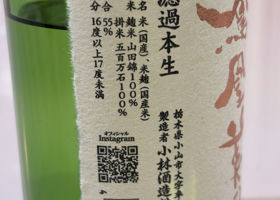 鳳凰美
濾過本生
名 米(国産)、米麹(国産米)
麹米 山田錦100%
掛米 五百万石100%
合 55%
分 16度以上17度未満
栃木県小山市大字卒
製造者 小林酒造
オフィシャル
Instagram